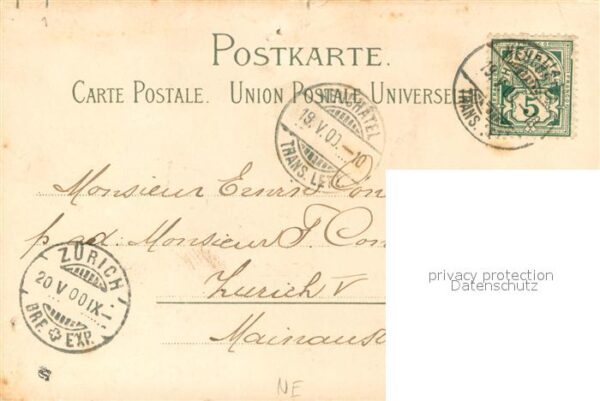 POSTKARTE.
CARTE POSTALE. UNION POSTALE UNIVERSELL
5
NEUCHÂTEL
19.V.00.–10
TRANS. LET
Monsieur Con
p. ad. Monsieur F. Con
Zurich V
Mainaus
ZÜRICH
20 V 00 IX–
BRF. EXP.
privacy protection
Datenschutz
NE